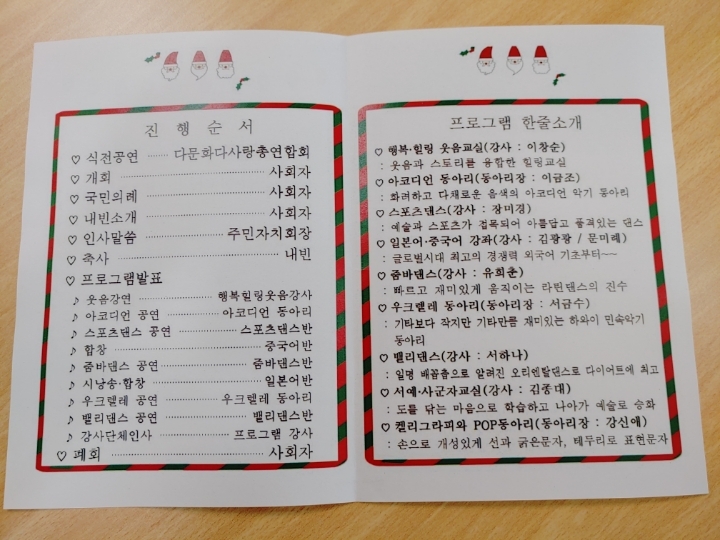 진 행 순 서
♡ 식전공연 ······ 다문화다사랑총연합회
♡ 개회 ······ 사회자
♡ 국민의례 ······ 사회자
♡ 내빈소개 ······ 사회자
♡ 인사말씀 ······ 주민자치회장
♡ 축사 ······ 내빈
♡ 프로그램발표
♪ 웃음강연 ······ 행복힐링웃음강사
♪ 아코디언 공연 ······ 아코디언 동아리
♪ 스포츠댄스 공연 ······ 스포츠댄스반
♪ 합창 ······ 중국어반
♪ 줌바댄스 공연 ······ 줌바댄스반
♪ 시낭송·합창 ······ 일본어반
♪ 우크렐레 공연 ······ 우크렐레 동아리
♪ 밸리댄스 공연 ······ 밸리댄스반
♪ 강사단체인사 ······ 프로그램 강사
♡ 폐회 ······ 사회자
프로그램 한줄소개
♡ 행복·힐링 웃음교실(강사 : 이창순)
: 웃음과 스토리를 융합한 힐링교실
♡ 아코디언 동아리(동아리장 : 이금조)
: 화려하고 다채로운 음색의 아코디언 악기 동아리
♡ 스포츠댄스(강사 : 장미경)
: 예술과 스포츠가 접목되어 아름답고 품격있는 댄스
♡ 일본어·중국어 강좌(강사 : 김광광 / 문미례)
: 글로벌시대 최고의 경쟁력 외국어 기초부터~~
♡ 줌바댄스(강사 : 유희춘)
: 빠르고 재미있게 움직이는 라틴댄스의 진수
♡ 우크렐레 동아리(동아리장 : 서금수)
: 기타보다 작지만 기타만큼 재미있는 하와이 민속악기
동아리
♡ 밸리댄스(강사 : 서하나)
: 일명 배꼽춤으로 알려진 오리엔탈댄스로 다이어트에 최고
♡ 서예·사군자교실(강사 : 김종대)
: 도를 닦는 마음으로 학습하고 나아가 예술로 승화
♡ 켈리그라피와 POP동아리(동아리장 : 강신애)
: 손으로 개성있게 선과 굵은문자, 테두리로 표현문자